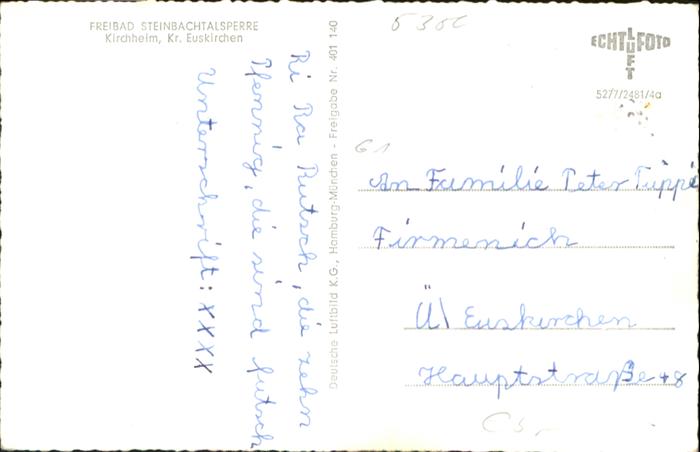 FREIBAD STEINBACHTALSPERRE
Kirchheim, Kr. Euskirchen
Ri Ra Rutsch, die zehn
Pfennig, die sind futsch
Unterschrift: XXXX
Deutsche Luftbild K.G., Hamburg-München - Freigabe Nr. 401 140
ECHT LUFT FOTO
5277/2481/4a
An Familie Peter Tuppi
Firmenich
Ü\ Euskirchen
Hauptstraße 48